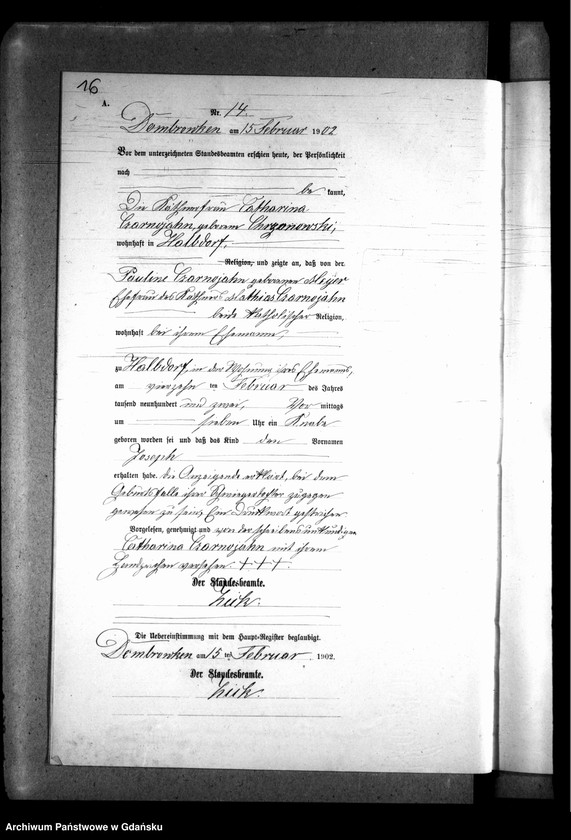 16
A.
Nr. 14.
Dombrowken am 15 Februar 1902
Vor dem unterzeichneten Standesbeamten erschien heute, der Persönlichkeit
nach
be kannt,
Die Käthnerfrau Catharina
Czarnojahn, geborene Chrzanowski,
wohnhaft in Halbdorf,
Religion, und zeigte an, daß von der
Pauline Czarnojahn geborenen Meyer
Ehefrau des Käthners Mathias Czarnojahn
beide katholischer Religion,
wohnhaft bei ihrem Ehemanne,
zu Halbdorf, in der Wohnung ihres Ehemannes,
am vierzehn ten Februar des Jahres
tausend neunhundert und zwei, Vor mittags
um sieben Uhr ein Knabe
geboren worden sei und daß das Kind den Vornamen
Joseph
erhalten habe. Die Anzeigende erklärt, bei dem
Geburtsfalle ihrer Schwiegertochter zugegen
gewesen zu sein, Ein Druckwort gestrichen
Vorgelesen, genehmigt und von der schreibensunkundigen
Catharina Czarnojahn mit ihrem
Handzeichen versehen. + + +.
Der Standesbeamte.
Die Uebereinstimmung mit dem Haupt-Register beglaubigt.
Dombrowken am 15 ten Februar 1902.
Der Standesbeamte.
Archiwum Państwowe w Gdańsku